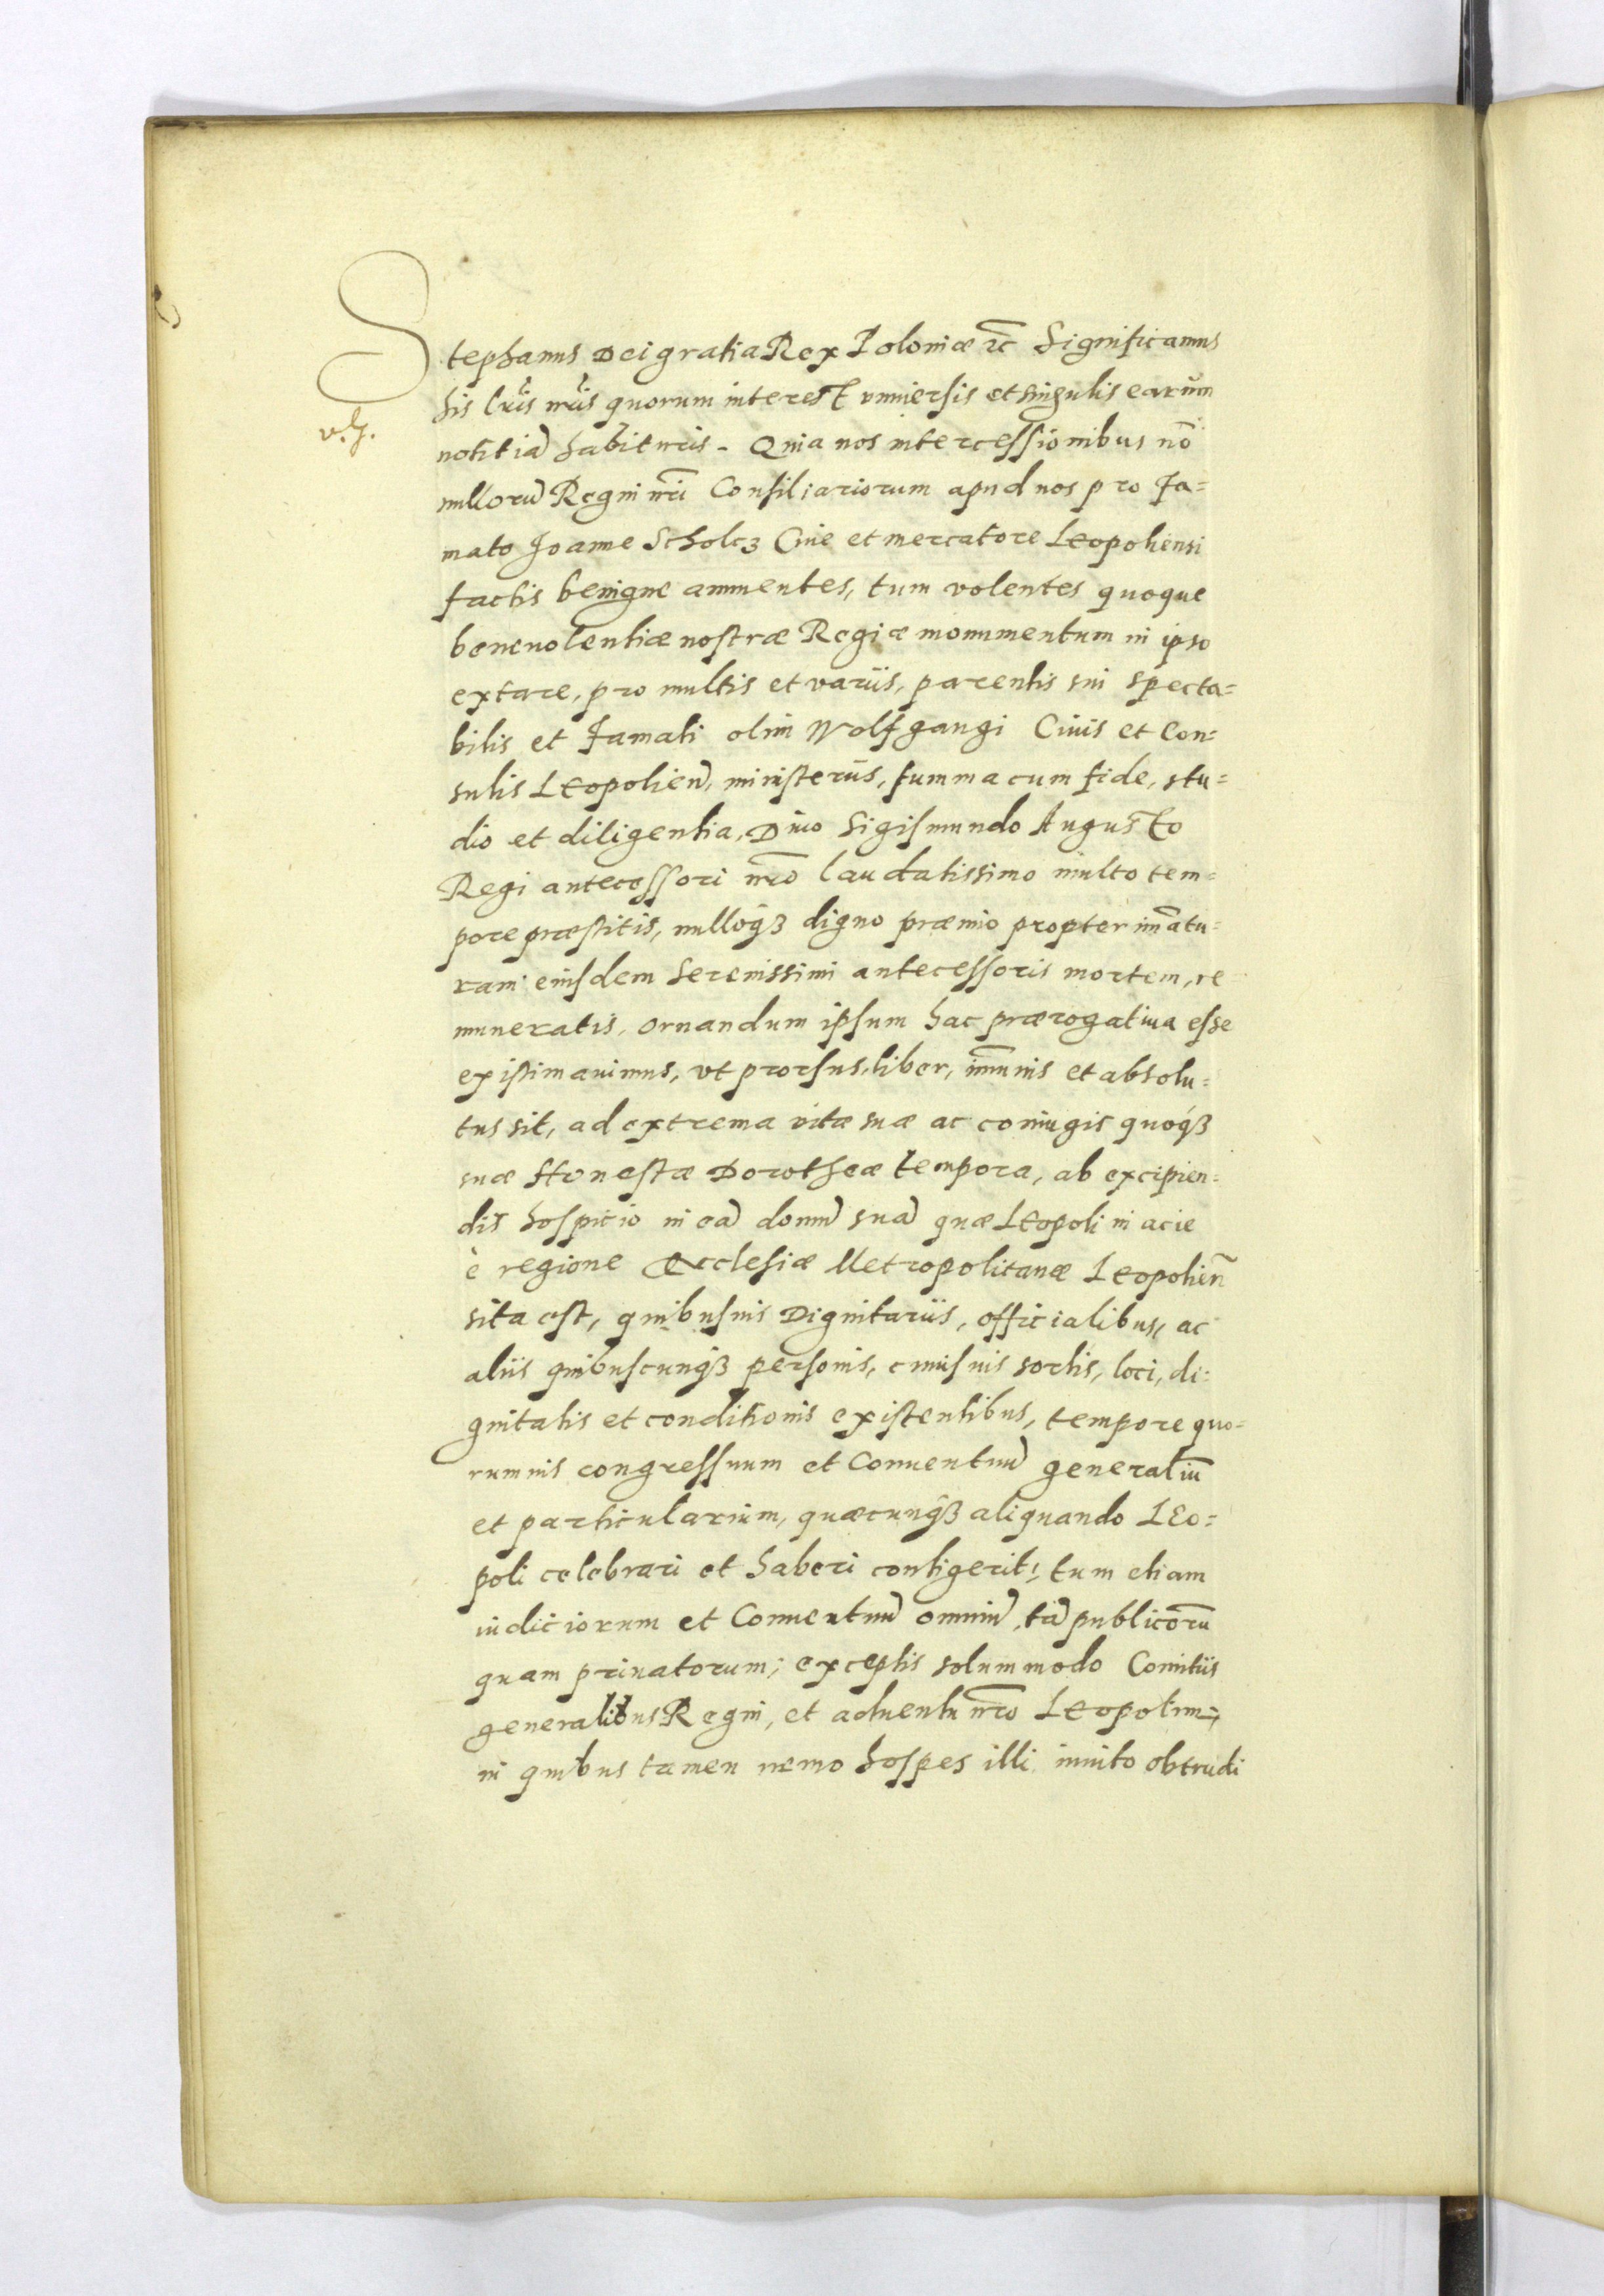 Stephanus Dei gratia Rex Poloniæ rc̃ Significamus
his lr̃is nr̃is quorum interest vniuersis et singulis earum
v.h.
notitiã habituris. Quia nos intercessionibus nõ
nullorũ Regni nr̃i Consiliariorum apud nos pro Fa=
mato Joanne Scholcz Ciue et mercatore Leopoliensi
factis benigne annuentes, tum volentes quoque
beneuolentiæ nostræ Regiæ monumentum in ipso
extare, pro multis et varijs, parentis sui specta=
bilis et Famati olim Wolfgangi Ciuis et Con=
sulis Leopolien̄, ministerijs, summa cum fide, stu=
dio et diligentia, Diuo Sigismundo Augusto
Regi antecessori nr̃o laudatissimo multo tem=
pore præstitis, nulloqз digno præmio propter im̃atu=
ram eiusdem Serenissimi antecessoris mortem, re
muneratis, ornandum ipsum hac prærogatiua esse
existimauimus, vt prorsus, liber, im̃unis et absolu=
tus sit, ad extrema vitæ suæ ac coniugis quoqз
suæ Honestæ Dorotheæ tempora, ab excipien=
dis hospicio in eã domũ suã quæ Leopoli in acie
è regione Ecclesiæ Metropolitanæ Leopolien̄
sita est, quibusuis Dignitarijs, officialibus, ac
alijs quibuscunqз personis, cuiusuis sortis, loci, di=
gnitatis et conditionis existentibus, tempore quo=
rumuis congressuum et Conuentuũ generaliũ
et particularium, quæcunqз aliquando Leo=
poli celebrari et haberi contigerit; tum etiam
iudiciorum et Conuentuũ omniũ, tã publicorũ
quam priuatorum; exceptis solummodo Comitijs
generalibus Regni, et aduentu nr̃o Leopolim;
in quibus tamen nemo hospes illi inuito obtrudi